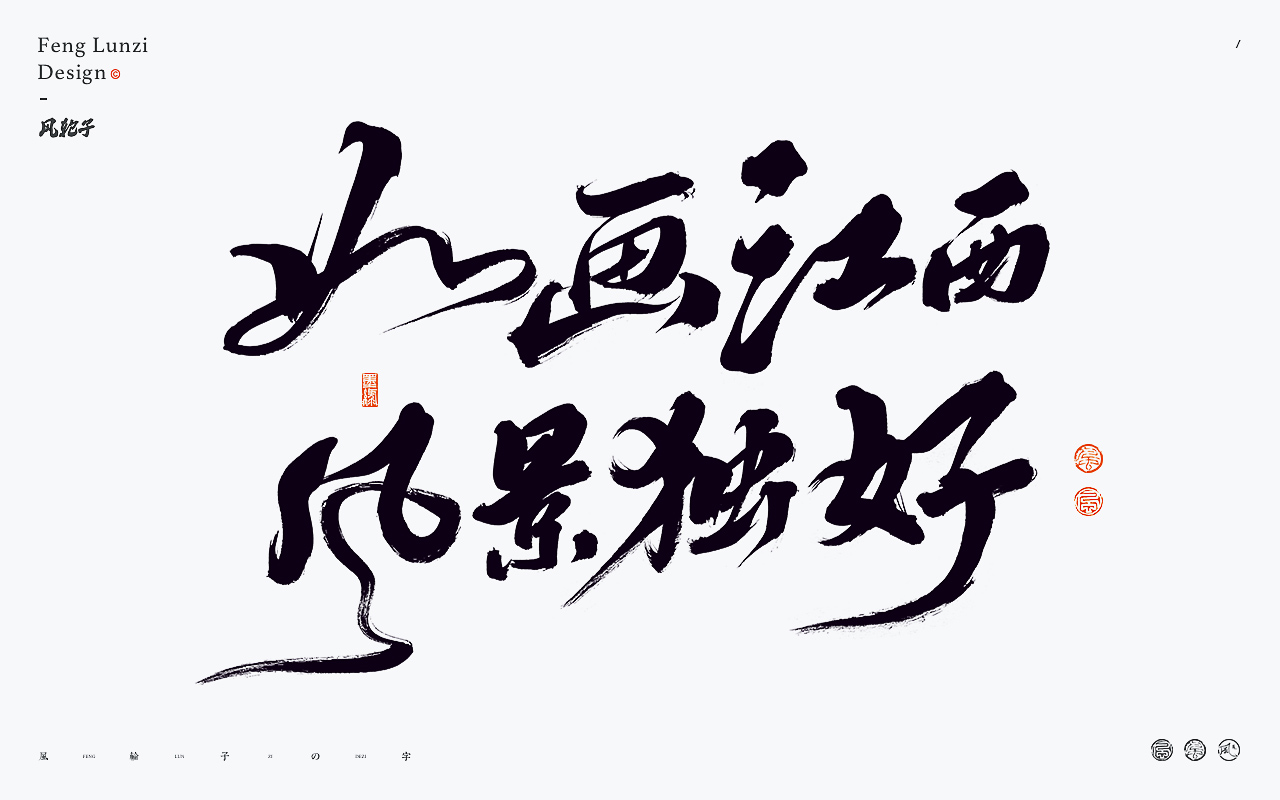 Feng Lunzi
Design©
风轮子
/
如画江西
风景独好
風 FENG 輪 LUN 子 ZI の DEZI 字